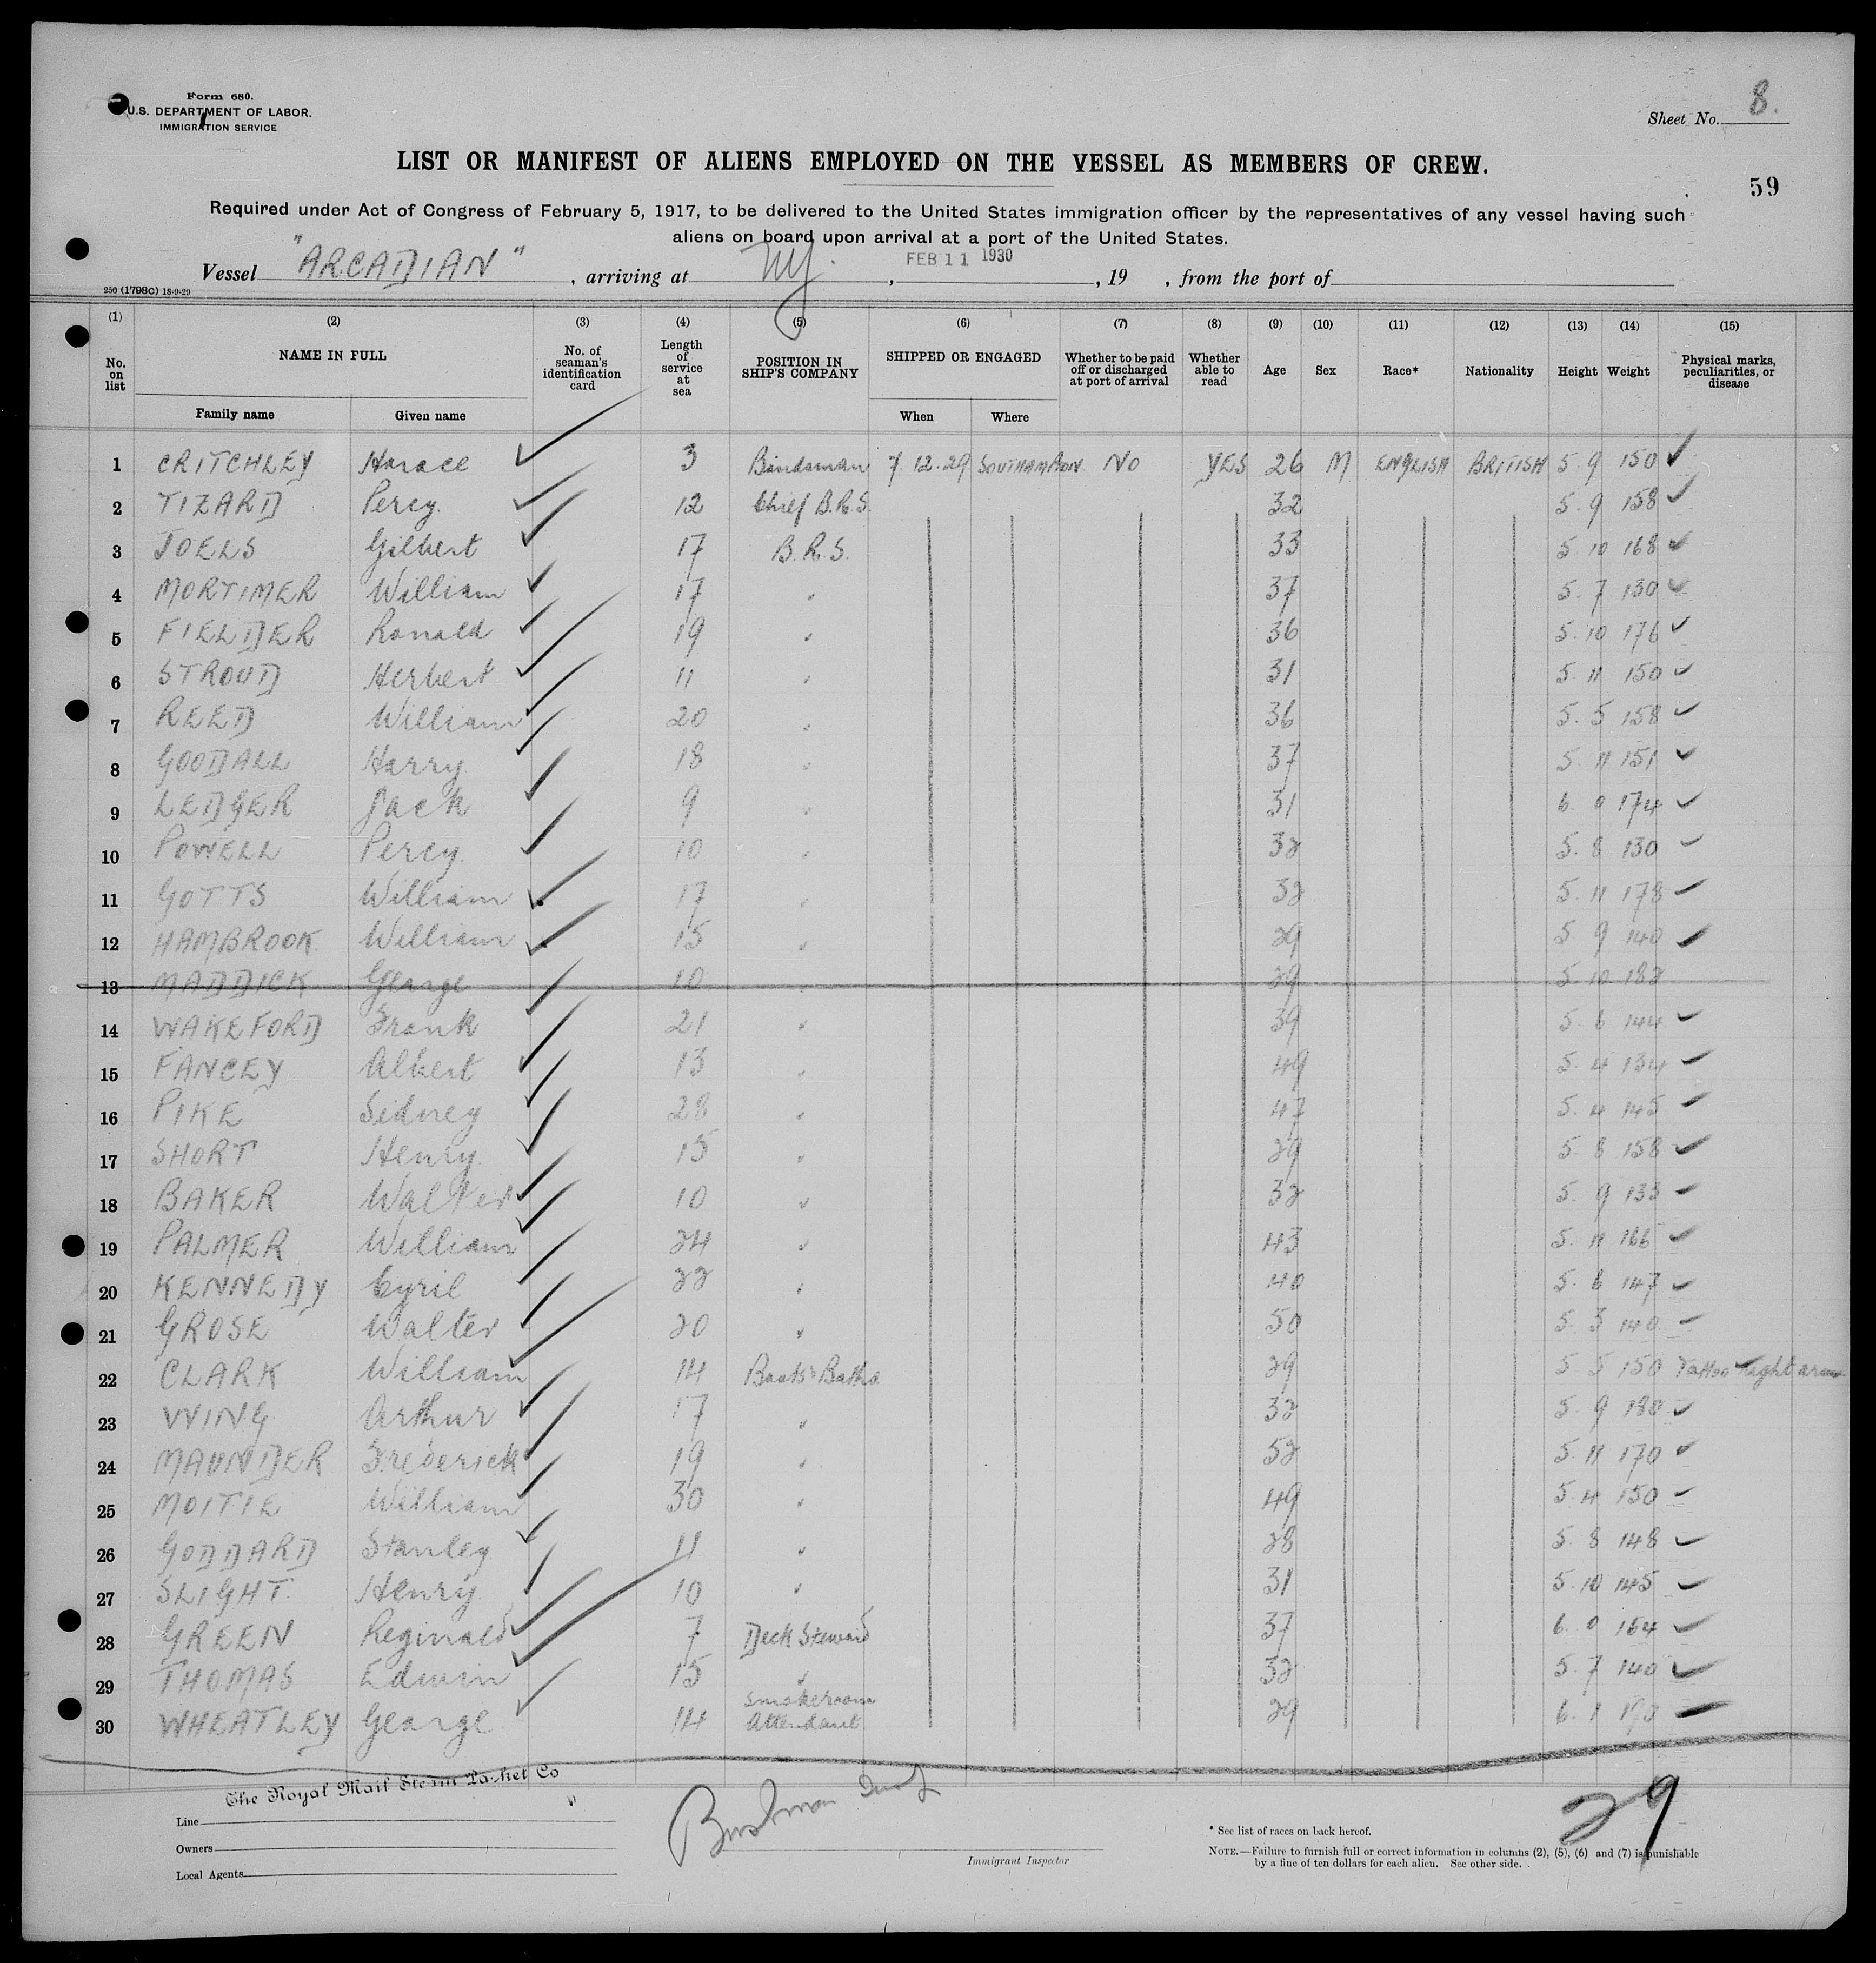 Form 680.
U.S. DEPARTMENT OF LABOR.
IMMIGRATION SERVICE
Sheet No. 8.
LIST OR MANIFEST OF ALIENS EMPLOYED ON THE VESSEL AS MEMBERS OF CREW.
59
Required under Act of Congress of February 5, 1917, to be delivered to the United States immigration officer by the representatives of any vessel having such
aliens on board upon arrival at a port of the United States.
Vessel "ARCADIAN", arriving at NY., FEB 11 1930, 19 , from the port of
250 (1798C) 18-9-29
(1) (2) (3) (4) (5) (6) (7) (8) (9) (10) (11) (12) (13) (14) (15)
No. on list NAME IN FULL Family name Given name No. of seaman's identification card Length of service at sea POSITION IN SHIP'S COMPANY SHIPPED OR ENGAGED When Where Whether to be paid off or discharged at port of arrival Whether able to read Age Sex Race* Nationality Height Weight Physical marks, peculiarities, or disease
1 CRITCHLEY Horace 3 Bandsman 7.12.29 SOUTHAMPTON NO YES 26 M ENGLISH BRITISH 5 9 150
2 TIZARD Percy. 12 Chief B.R.S. 32 5. 9 158
3 JOELS Gilbert 17 B.R.S. 33 5 10 168
4 MORTIMER William 17 " 37 5. 7 130
5 FIELDER Ronald 19 " 36 5. 10 176
6 STROUD Herbert 11 " 31 5. 11 150
7 REED William 20 " 36 5. 5 158
8 GOODALL Harry 18 " 37 5. 11 151
9 LEDGER Jack 9 " 31 6. 0 174
10 POWELL Percy. 10 " 32 5. 8 130
11 GOTTS William 17 " 32 5. 11 178
12 HAMBROOK William 15 " 29 5 9 140
13 MADDICK George 10 " 29 5. 10 182
14 WAKEFORD Frank 21 " 39 5. 6 144
15 FANCEY Albert 13 " 49 5. 4 134
16 PIKE Sidney 28 " 47 5. 4 145
17 SHORT Henry 15 " 29 5. 8 158
18 BAKER Walter 10 " 32 5. 9 133
19 PALMER William 24 " 43 5. 11 166
20 KENNEDY Cyril 22 " 40 5. 6 147
21 GROSE Walter 20 " 50 5. 3 140
22 CLARK William 14 Boots & Baths 29 5 5 150 Tattoo Right arm
23 WING Arthur 17 " 32 5. 9 180
24 MAUNDER Frederick 19 " 52 5. 11 170
25 MOITIE William 30 " 49 5. 4 150
26 GODDARD Stanley 11 " 28 5. 8 148
27 SLIGHT. Henry 10 " 31 5. 10 145
28 GREEN Reginald 7 Deck Steward 37 6. 0 164
29 THOMAS Edwin 15 " 32 5. 7 140
30 WHEATLEY George 14 Smokeroom Attendant 29 6. 1
The Royal Mail Steam Packet Co
29
Line
Owners
Local Agents
Immigrant Inspector
* See list of races on back hereof.
NOTE.—Failure to furnish full or correct information in columns (2), (5), (6) and (7) is punishable
by a fine of ten dollars for each alien. See other side.